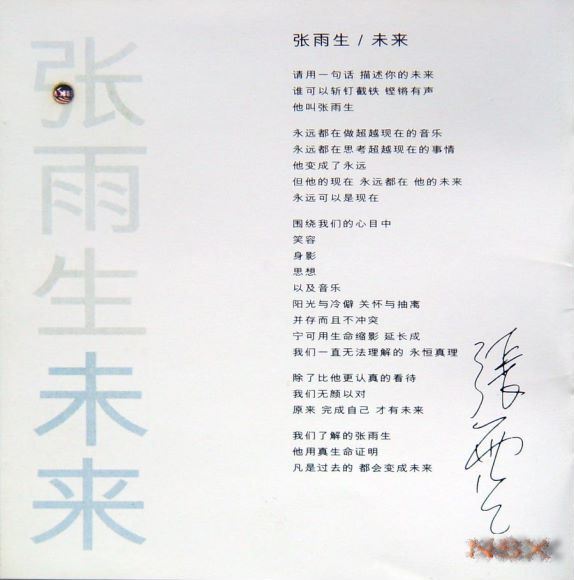 张雨生未来
张雨生 / 未来
请用一句话 描述你的未来
谁可以斩钉截铁 铿锵有声
他叫张雨生
永远都在做超越现在的音乐
永远都在思考超越现在的事情
他变成了永远
但他的现在 永远都在 他的未来
永远可以是现在
围绕我们的心目中
笑容
身影
思想
以及音乐
阳光与冷僻 关怀与抽离
并存而且不冲突
宁可用生命缩影 延长成
我们一直无法理解的 永恒真理
除了比他更认真的看待
我们无颜以对
原来 完成自己 才有未来
我们了解的张雨生
他用真生命证明
凡是过去的 都会变成未来
張雨生
NSX